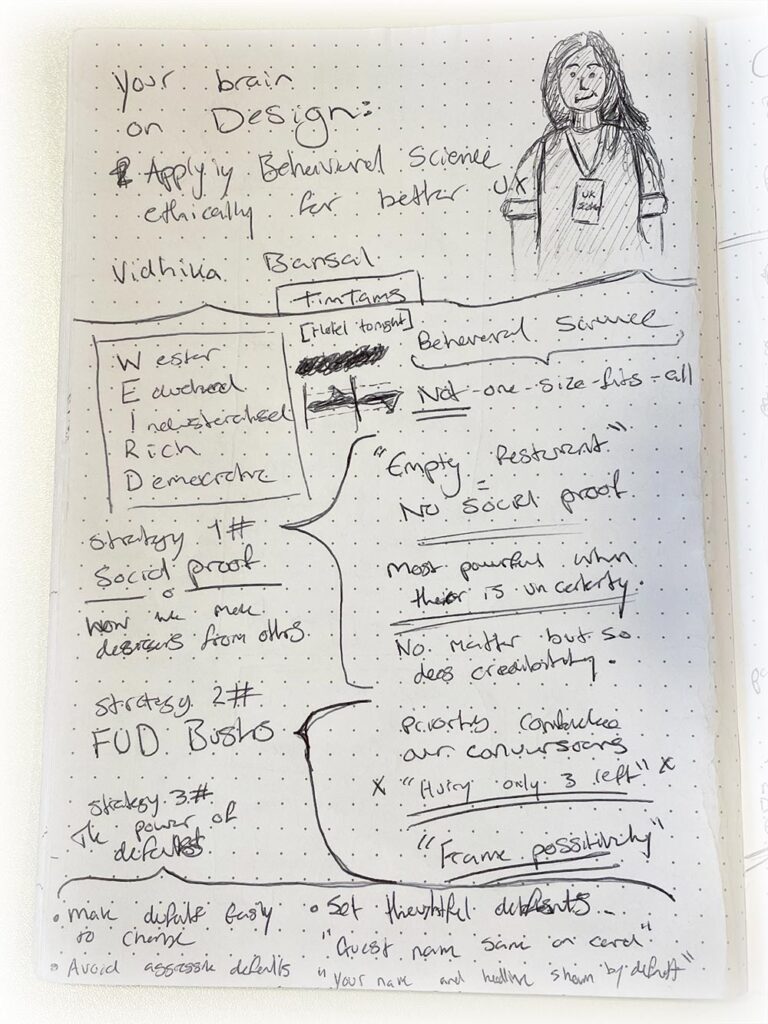 your brain
on Design:
Applyiy Behavioural Science
ethically for better UX
UX
Vidhika Bansal
TimTams
[Hotel tonight]
Wester
Educated
Industerialised
Rich
Democrative
Behavioral Science
Not-one-size-fits-all
strategy 1#
Social proof
how we make
from others
"Empty Resturant"
=
No Social proof
Most powerful when
is uncertenty.
No. matter but so
does credibility.
strategy 2#
FUD Busts
priority
our conversions
x "Hurry only 3 left" x
"Frame possitivity"
strategy 3#
The power of
defaults
• Make defaults Easily
to change
• Avoid aggressive defaults
• Set thoughtful defaults...
"Guest name same on card"
"Your name and headline shown by default"